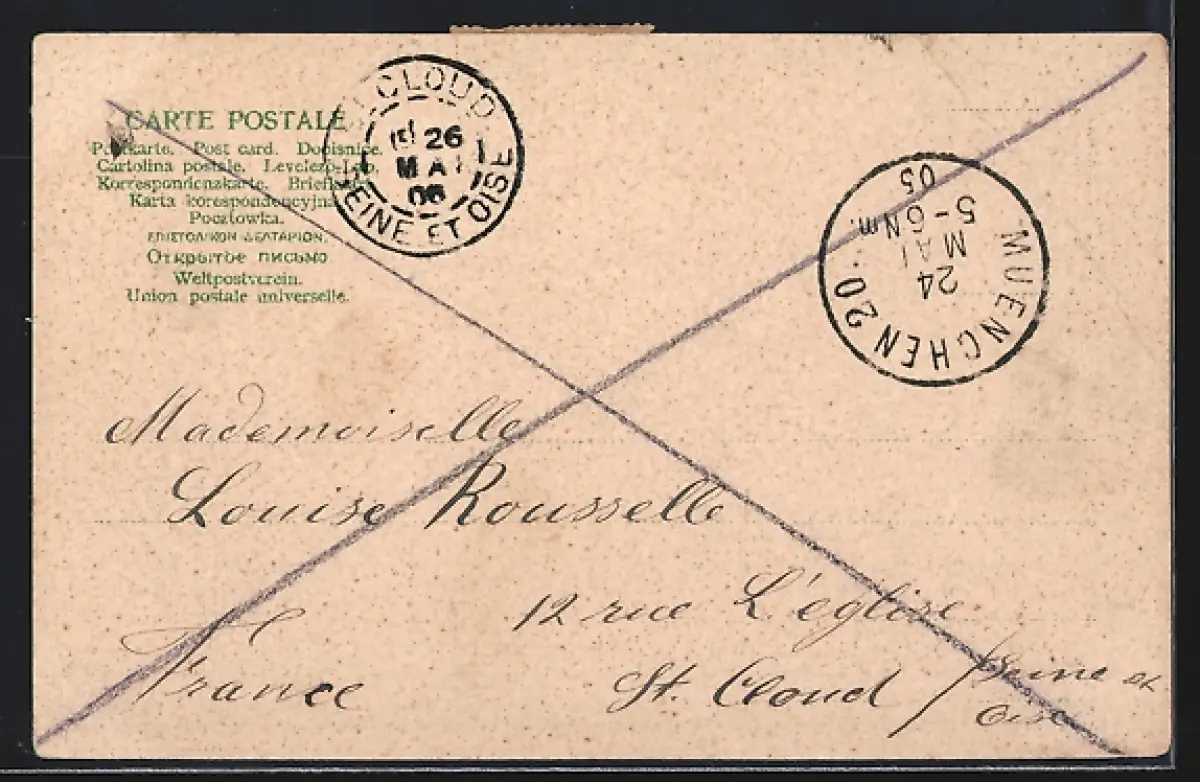 CARTE POSTALE
Postkarte. Post card. Dopisnice.
Cartolina postale. Levelező-Lap.
Korrespondenzkarte. Briefkaart.
Karta korespondencyjna
Pocztowka.
ΕΠΙΣΤΟΛΙΚΟΝ ΔΕΛΤΑΡΙΟΝ.
Открытое письмо
Weltpostverein.
Union postale universelle.
CLOUD
26
MAI
SEINE ET OISE
MUENCHEN 20.
24
MAI
5-6Nm.
05
Mademoiselle
Louise Rousselle
12 rue L'église
St. Cloud / Seine et
Oise
France